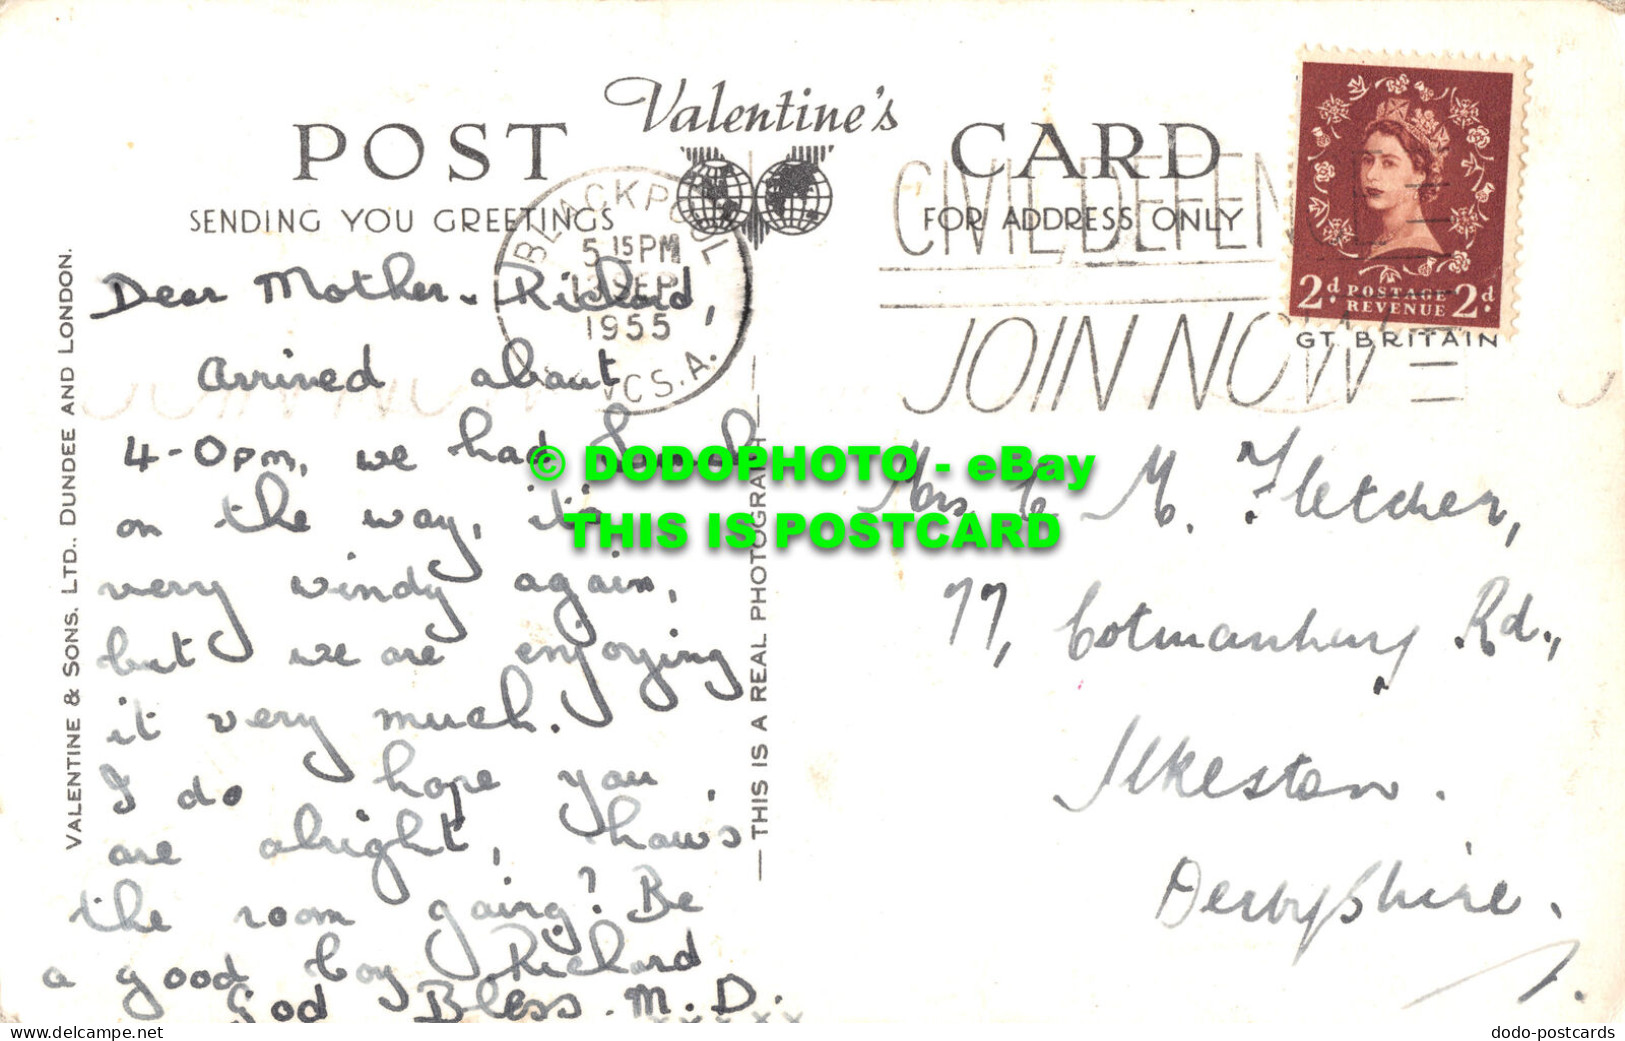 Valentine's
POST CARD
SENDING YOU GREETINGS
FOR ADDRESS ONLY
BLACKPOOL
5 15 PM
13 SEP
1955
LANCS.A.
CIVIL DEFENCE
JOIN NOW
2d POSTAGE REVENUE 2d
GT BRITAIN
VALENTINE & SONS. LTD., DUNDEE AND LONDON.
THIS IS A REAL PHOTOGRAPH
Dear Mother. Richard,
Arrived about
4-0pm, we had lunch
on the way, it's
very windy again,
but we are enjoying
it very much.
I do hope you
are alright, how's
the room going? Be
a good boy Richard
God Bless. M. D.
x x x x x
Mrs M. Fletcher,
77, Cotmanhay Rd.,
Ilkeston.
Derbyshire.
© DODOPHOTO - eBay
THIS IS POSTCARD
www.delcampe.net
dodo-postcards